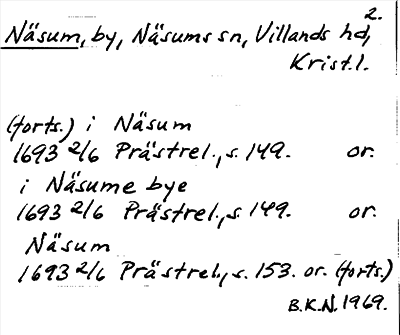 2.
Näsum, by, Näsums sn, Villands hd,
Krist.l.
(forts.) i Näsum
1693 2/6 Prästrel., s. 149. or.
i Näsume bye
1693 2/6 Prästrel., s. 149. or.
Näsum
1693 2/6 Prästrel., s. 153. or. (forts.)
B.K.N. 1969.